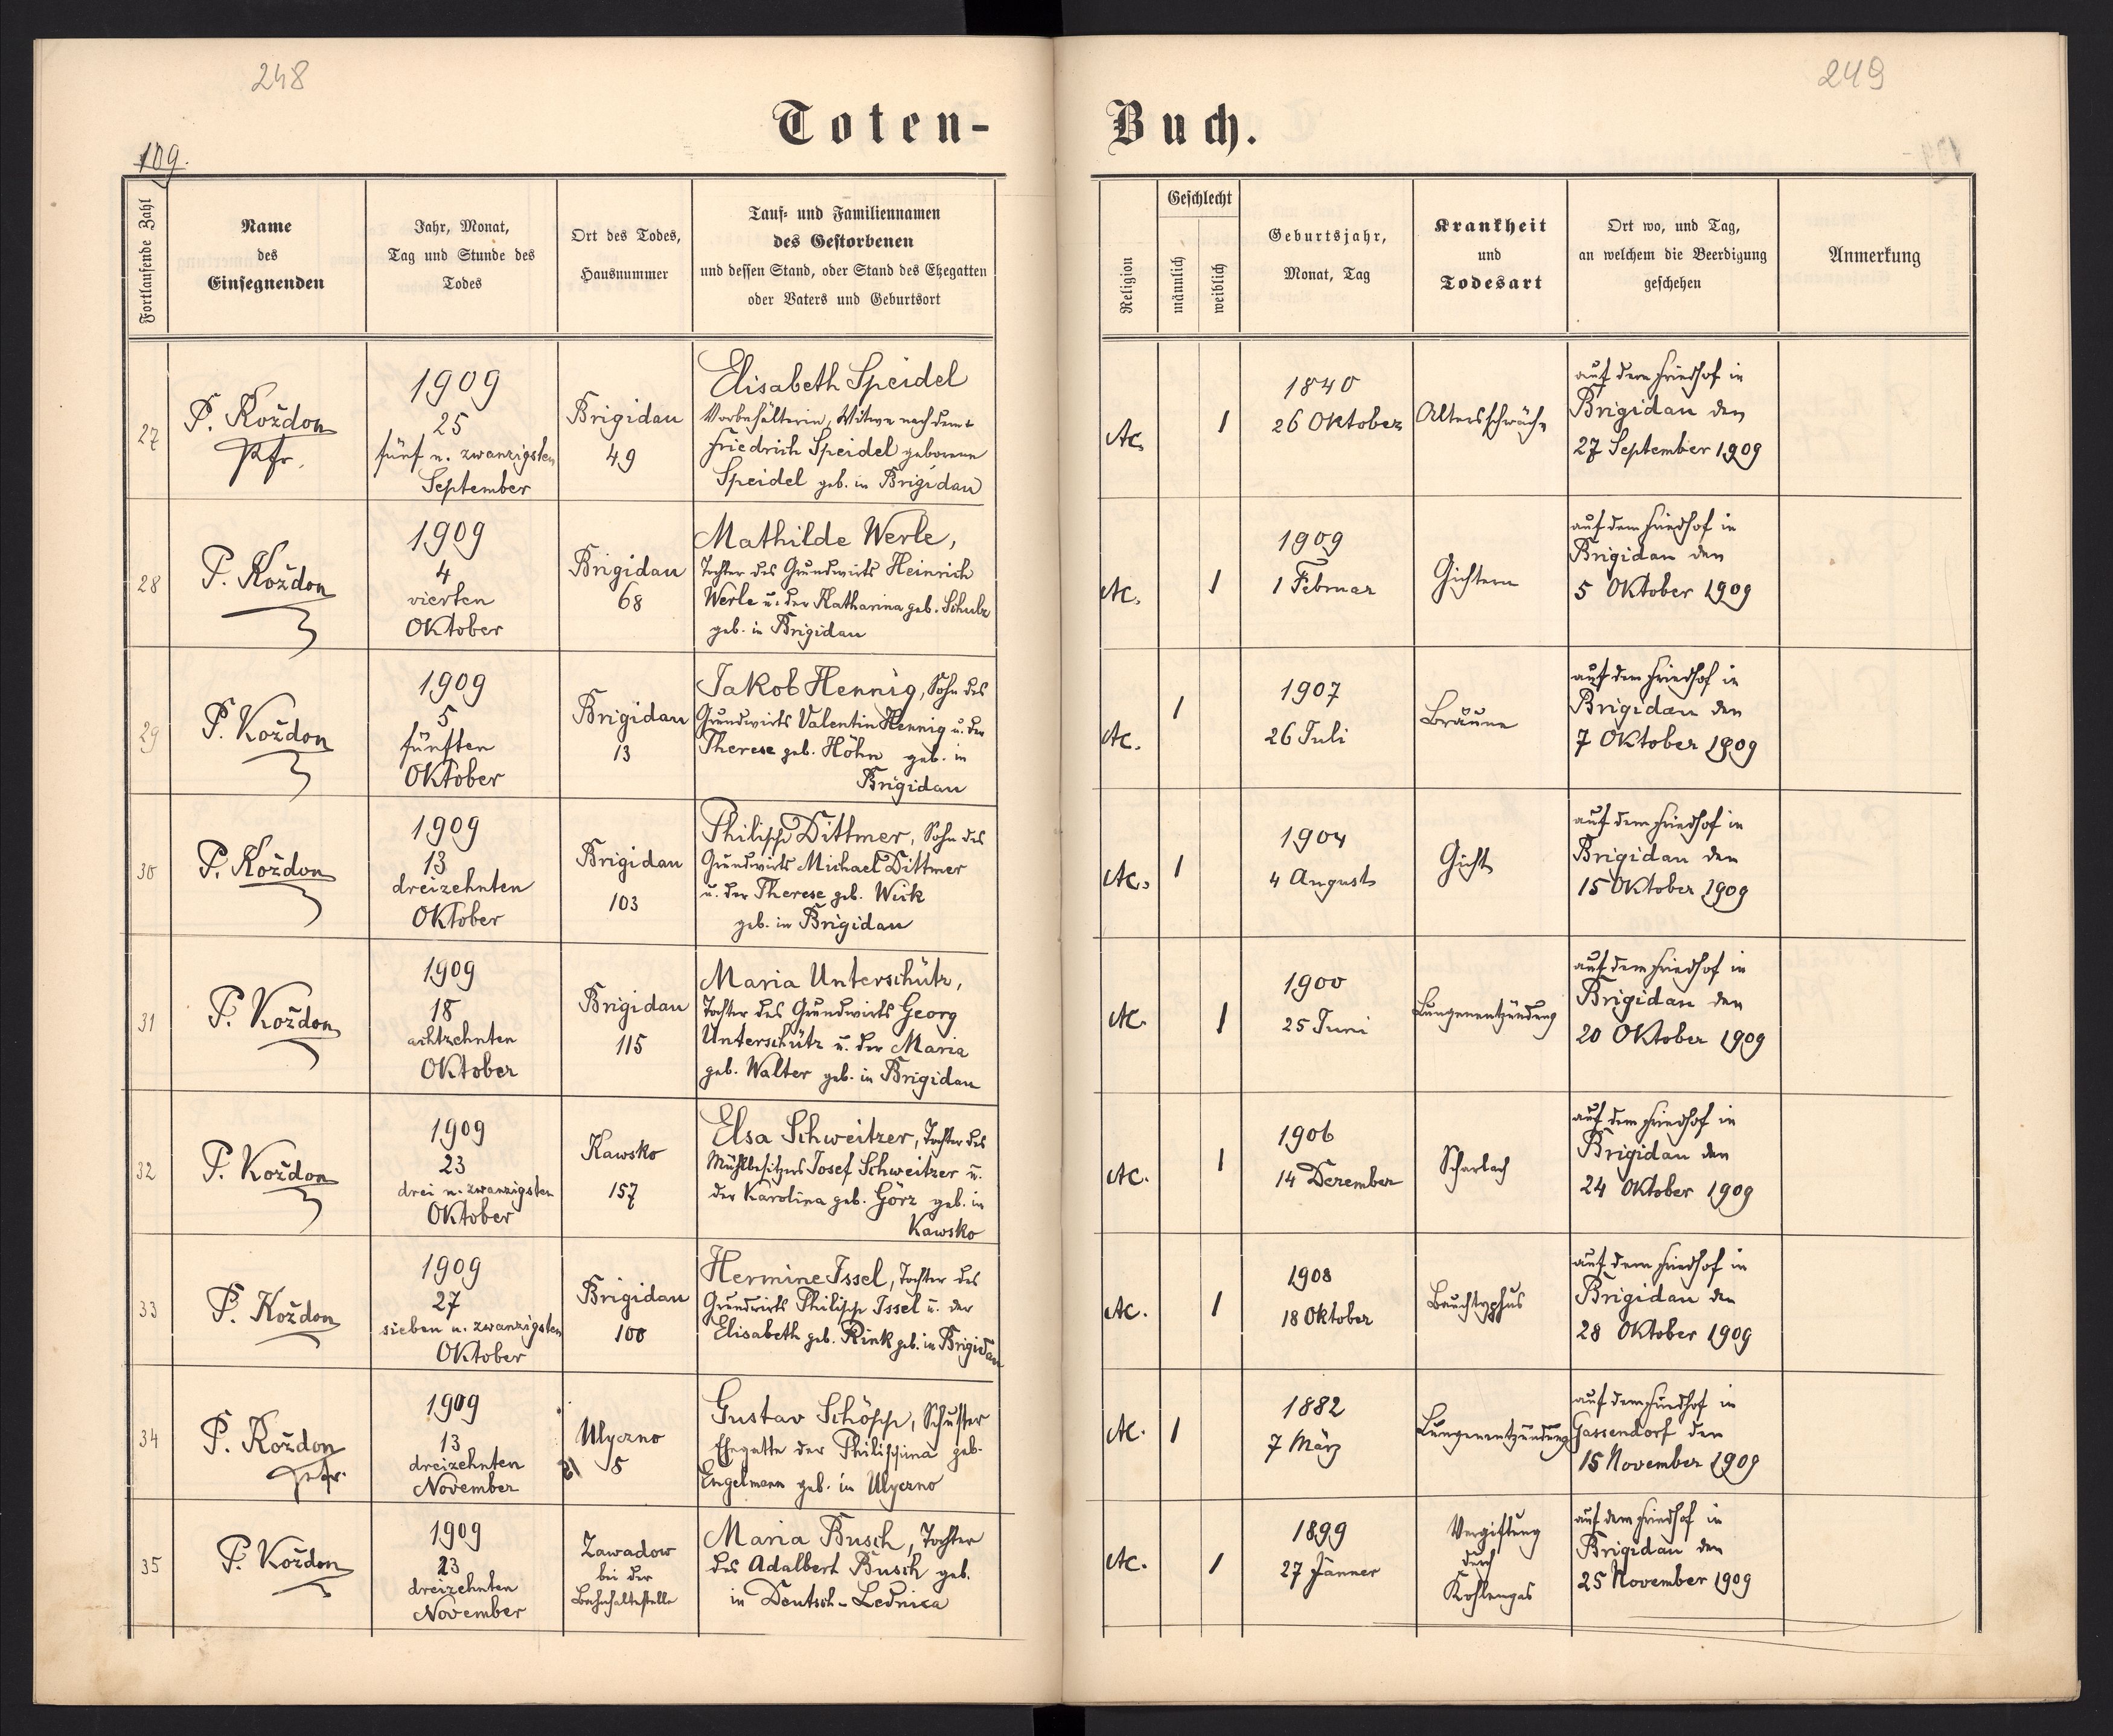 248
249
Toten-
Buch.
109.
Fortlaufende Zahl
Name
des
Einsegnenden
Jahr, Monat,
Tag und Stunde des
Todes
Ort des Todes,
Hausnummer
Tauf- und Familiennamen
des Gestorbenen
und dessen Stand, oder Stand des Ehegatten
oder Vaters und Geburtsort
Religion
Geschlecht
männlich
weiblich
Geburtsjahr,
Monat, Tag
Krankheit
und
Todesart
Ort wo, und Tag,
an welchem die Beerdigung
geschehen
Anmerkung
27
P. Koždon
Pfr.
1909
25
fünf u. zwanzigsten
September
Brigidau
49
Elisabeth Speidel
Vorbehälterin, Witwe nach dem †
Friedrich Speidel geborene
Speidel geb. in Brigidau
AC.
1
1840
26 Oktober
Altersschwäche
auf dem Friedhof in
Brigidau den
27 September 1909
28
P. Koždon
1909
4
vierten
Oktober
Brigidau
68
Mathilde Werle,
Tochter des Grundwirts Heinrich
Werle u. der Katharina geb. Schulz
geb. in Brigidau
AC.
1
1909
1 Februar
Gichtern
auf dem Friedhof in
Brigidau den
5 Oktober 1909
29
P. Koždon
1909
5
fünften
Oktober
Brigidau
13
Jakob Hennig, Sohn des
Grundwirts Valentin Hennig u. der
Therese geb. Höhn geb. in
Brigidau
AC.
1
1907
26 Juli
Bräune
auf dem Friedhof in
Brigidau den
7 Oktober 1909
30
P. Koždon
1909
13
dreizehnten
Oktober
Brigidau
103
Philipp Dittmer, Sohn des
Grundwirts Michael Dittmer
u. der Therese geb. Weik
geb. in Brigidau
AC.
1
1904
4 August
Gicht
auf dem Friedhof in
Brigidau den
15 Oktober 1909
31
P. Koždon
1909
18
achtzehnten
Oktober
Brigidau
115
Maria Unterschütz,
Tochter des Grundwirts Georg
Unterschütz u. der Maria
geb. Walter geb. in Brigidau
AC.
1
1900
25 Juni
Lungenentzündung
auf dem Friedhof in
Brigidau den
20 Oktober 1909
32
P. Koždon
1909
23
drei u. zwanzigsten
Oktober
Kawsko
157
Elsa Schweitzer, Tochter des
Mühlbesitzers Josef Schweitzer u.
der Karolina geb. Görz geb. in
Kawsko
AC.
1
1906
14 Dezember
Scharlach
auf dem Friedhof in
Brigidau den
24 Oktober 1909
33
P. Koždon
1909
27
sieben u. zwanzigsten
Oktober
Brigidau
100
Hermine Issel, Tochter des
Grundwirts Philipp Issel u. der
Elisabeth geb. Rink geb. in Brigidau
AC.
1
1908
18 Oktober
Bauchtyphus
auf dem Friedhof in
Brigidau den
28 Oktober 1909
34
P. Koždon
Pfr.
1909
13
dreizehnten
November
Ułyczno
5
Gustav Schöpp, Schuster
Ehegatte der Philippina geb.
Engelmann geb. in Ulyczno
AC.
1
1882
7 März
Lungenentzündung
auf dem Friedhof in
Gassendorf den
15 November 1909
35
P. Koždon
1909
23
dreizehnten
November
Zawadow
bei der
Bahnhaltestelle
Maria Busch, Tochter
des Adalbert Busch geb.
in Deutsch-Lednica
AC.
1
1899
27 Jänner
Vergiftung
durch
Kohlengas
auf dem Friedhof in
Brigidau den
25 November 1909